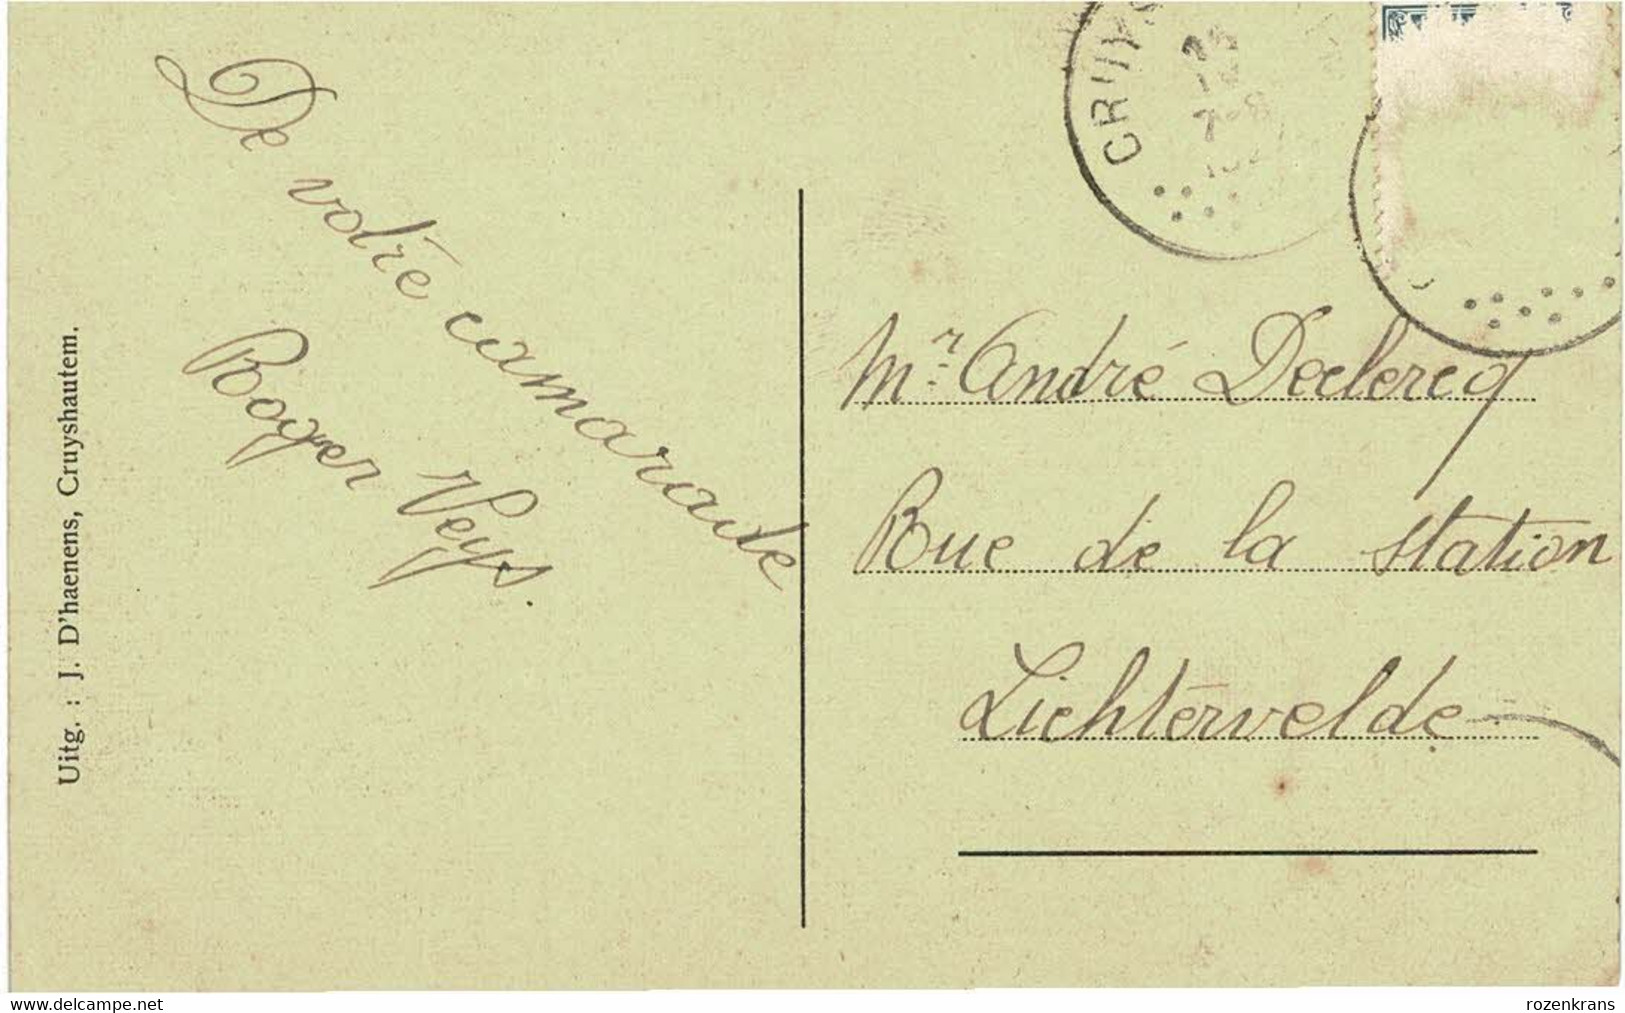 De votre camarade
Roger Veys.
Uitg. : J. D'haenens, Cruyshautem.
CRUYS
Mr. André Declercq
Rue de la Station
Lichtervelde
www.delcampe.net
rozenkrans